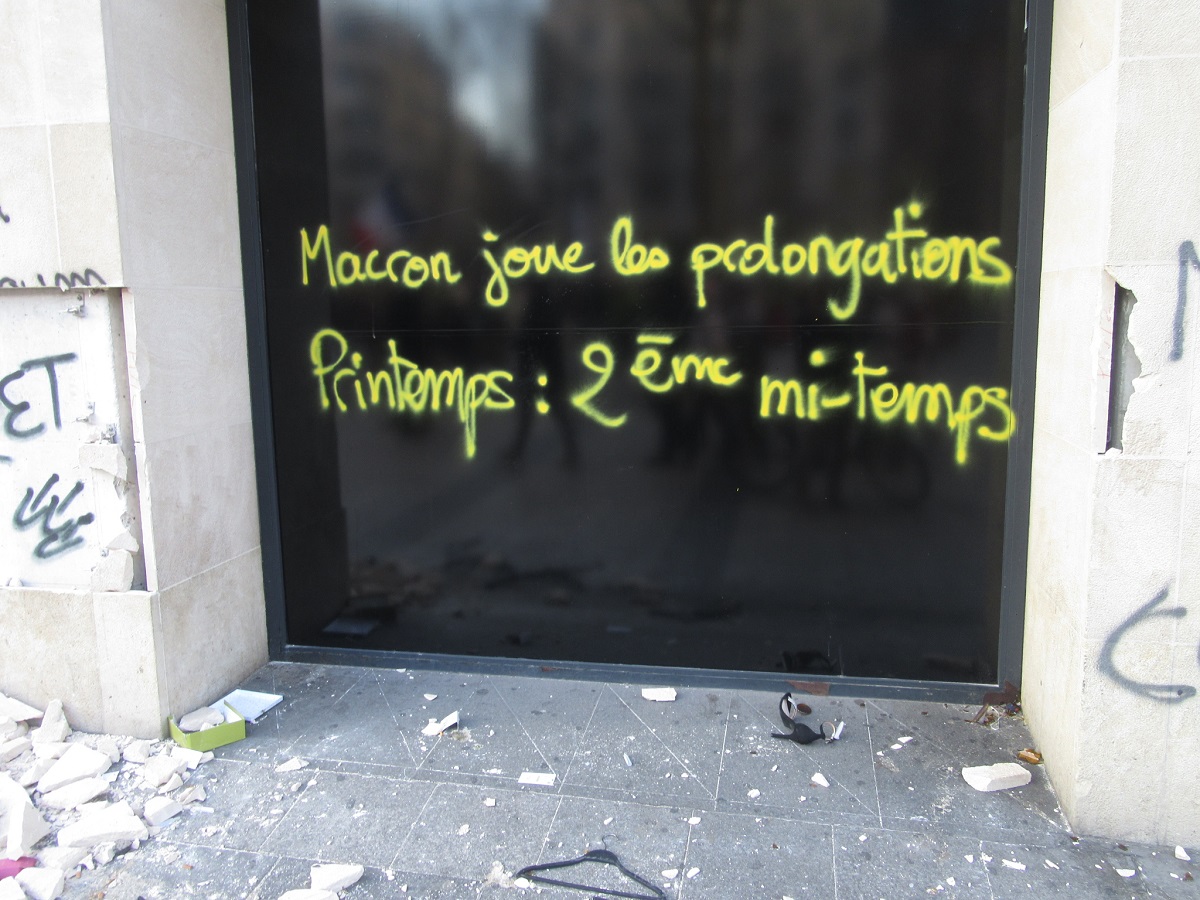 Macron joue les prolongations
Printemps : 2ème mi-temps
ET